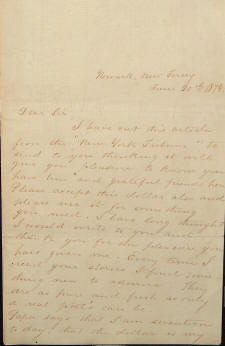 Newark, New Jersey
June 20th 1874.
Dear Sir
I have cut this article
from the "New York Tribune" to
send to you thinking it will
give you pleasure to know you
have true and grateful friends here.
Please accept this dollar also and
please use it for something
you need. I have long thought
I would write to you and
thank you for the pleasure you
have given me. Every time I
read your stories I find some-
thing new to admire. They
are as pure and fresh as only
a real poet's can be.
Papa says that I am seventeen
to day! that the dollar is my